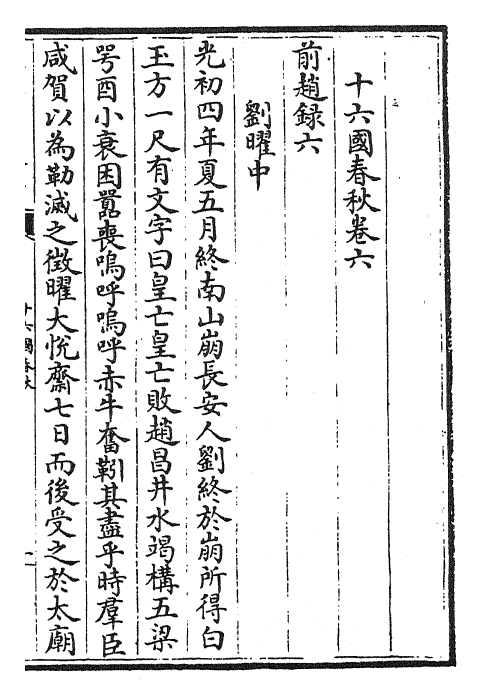 十六國春秋卷六
前趙録六
劉曜中
光初四年夏五月終南山崩長安人劉終於崩所得白
玉方一尺有文字曰皇亡皇亡敗趙昌井水竭構五梁
咢酉小衰困嚣喪嗚呼嗚呼赤牛奮靷其盡乎時羣臣
咸賀以為勒滅之徴曜大悅齋七日而後受之於太廟
十六國春秋